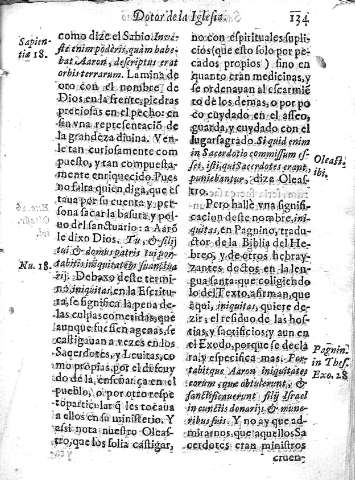 Dotor de la Iglesia.
134
Sapien-
tiæ 18.
como dize el Sabio. In ve-
ste enim poderis, quàm habe-
bat Aaron, descriptus erat
orbis terrarum. La mina de
oro con el nombre de
Dios en la frente, piedras
preciosas en el pecho: en
fin vna representació de
la grandeza diuina. Ven-
le tan curiosamente com
puesto, y tan compuesta-
mente enriquecido. Pues
no falta quien diga, que es
taua por su cuenta y per-
sona sacar la basura y pol-
uo del sanctuario: a Aaró
le dixo Dios. Tu, & filij
tui & domus patris tui por-
Nu. 18.
tabitis iniquitatem sanctua
rij: Debaxo deste termi-
no, iniquitas, en la Escritu
ra, se significa la pena de-
las culpas cometidas, que
aunque fuessen agenas, se
castigauan a vezes en los
Sacerdotes, y Leuitas, co
mo propias, por el descuy
do de la, enseñança en el
pueblo, o por otro respe
to particular q̃ les tocaua
a ellos en su ministerio. Y
assi nota nuestro Oleas-
tro, que los solia castigar,
no con espirituales supli-
cios (que esto solo por pe
cados propios) sino en
quanto eran medicinas, y
se ordenauan al escarmié
to de los demas, o por po
co cuydado en el asseo,
guarda, y cuydado con el
lugar sagrado. Si quid enim
in Sacerdotio commissum es-
set, isti, qui Sacerdotes erant
puniebantur, dize Oleas-
tro.
Oleast.
ibi.
Pero hallé vna signifi-
cacion deste nombre, ini-
quitas, en Pagnino, traduc-
tor de la Biblia del He-
breo, y de otros hebray-
zantes doctos en la len-
gua santa: que coligiendo
lo del Texto, afirman, que
aqui, iniquitas, quiere de-
zir; el residuo de las hos-
tias, y sacrificios, y aun en
el Exodo, porque se decla
ra, y especifica mas. Por-
tabitque Aaron iniquitates
eorum, quæ obtulerunt, &
sanctificauerunt filij Israel
in cunctis donarijs & mune-
ribus suis. Y no ay que ad-
mirarnos, que aquellos Sa
cerdotes eran ministros
Pagnin.
in Thes.
Exo. 28
cruen-